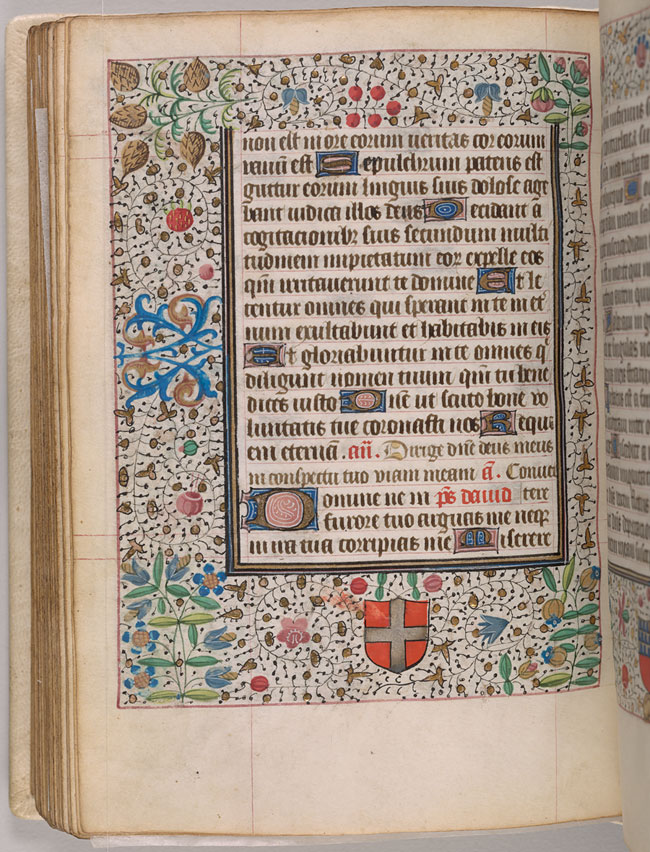 non est in ore eorum veritas cor eorum
vanū est Sepulchrum patens est
guttur eorum linguis suis dolose age
bant iudica illos deus Decidant a
cogitacionibz suis secundum multi
tudinem impietatum eor expelle eos
qm̄ irritaverunt te domine Et le
tentur omnes qui sperant in te in et
num exultabunt et habitabis in eis
Et gloriabuntur in te omnes q̄
diligunt nomen tuum qm̄ tu bene
dices iusto Dn̄e ut scuto bone vo
luntatis tue coronasti nos Requi
em eternā. añ. Dirige dn̄e deus meus
in conspectu tuo viam meam a. Convert
Domine ne in ps david tere
furore tuo arguas me neqz
in ira tua corripias me Miserere